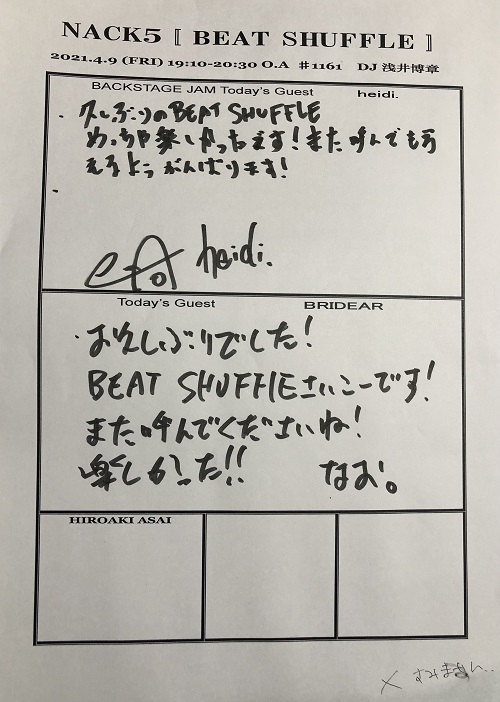 NACK5 [ BEAT SHUFFLE ]
2021.4.9 (FRI) 19:10-20:30 O.A #1161 DJ 浅井博章
BACKSTAGE JAM Today's Guest heidi.
久しぶりのBEAT SHUFFLE
めっちゃ楽しかったです!また呼んでもら
えるようがんばります!
heidi.
Today's Guest BRIDEAR
お久しぶりでした!
BEAT SHUFFLEさいこーです!
また呼んでくださいね!
楽しかった!! なお。
HIROAKI ASAI
× すみません..